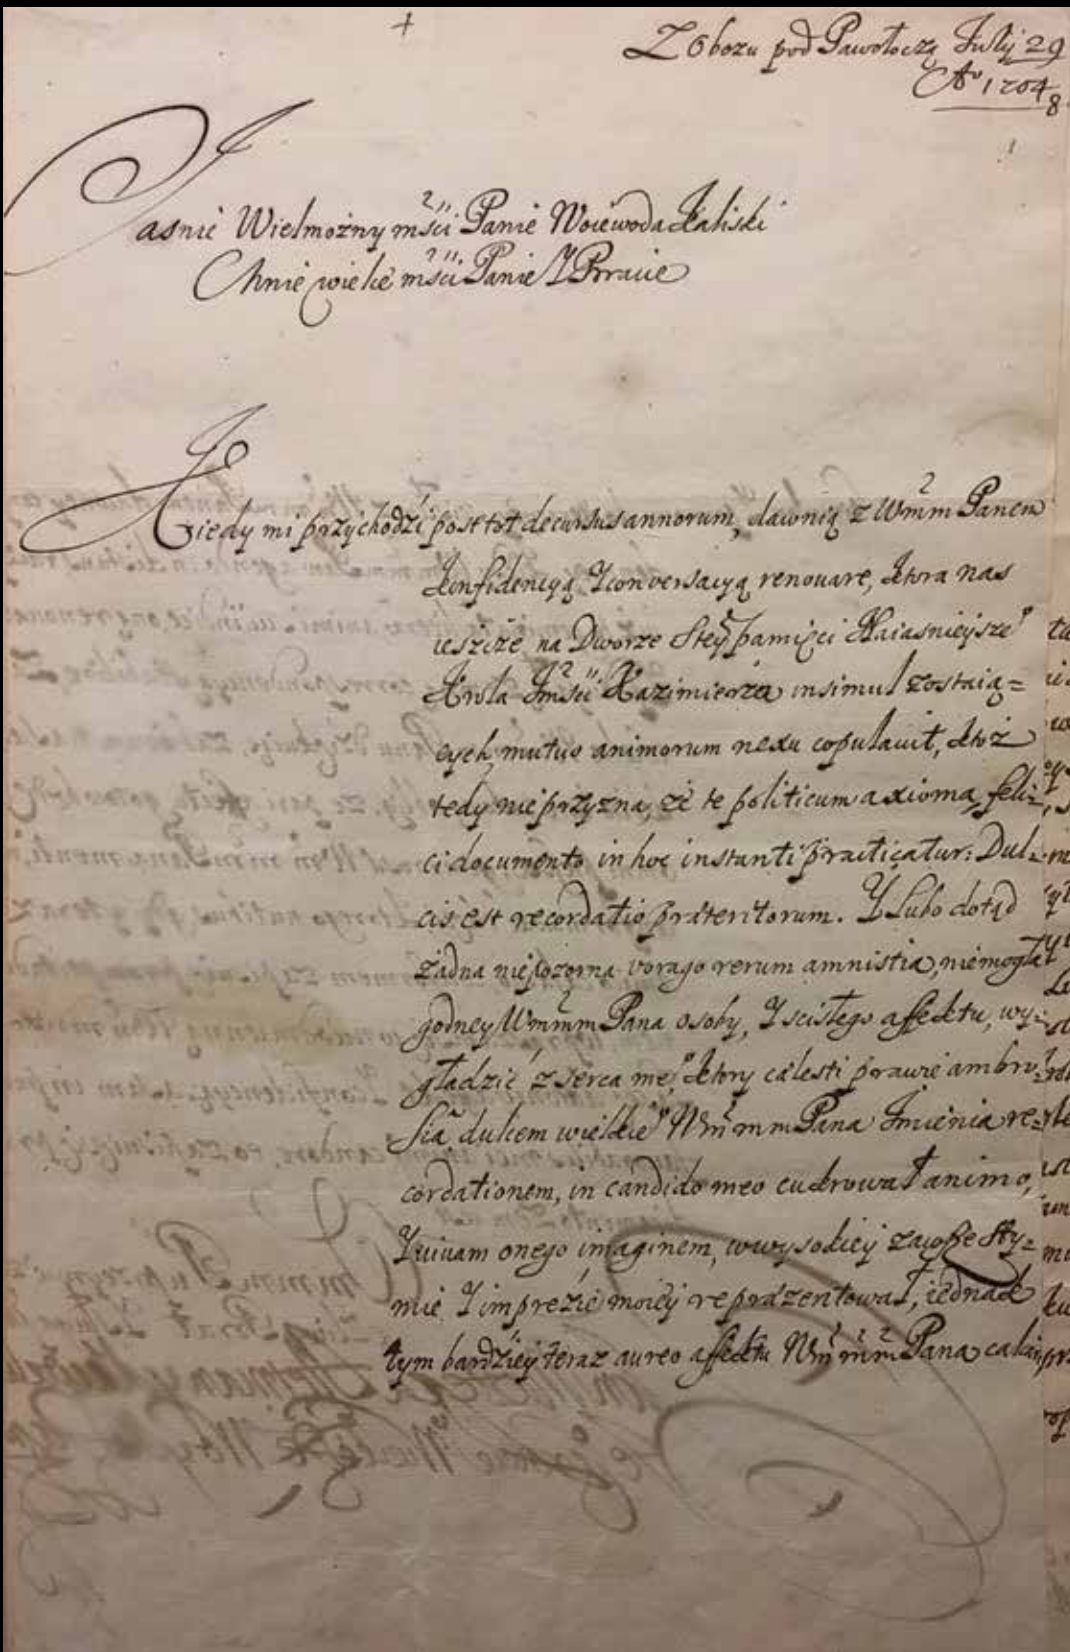 Z Obozu pod Pawołoczą Julij 29
Ao 1704
8
Jasnie Wielmożny mści Panie Woiewoda Kaliski
Mnie wielce mści Panie Y Bracie
Kiedy mi przychodźi post tot decursus annorum, dawnią z Wmm Panem
konfidencyą Y conversacyą renouare, ktora nas
ieszcze na Dworze Stey pamięci Naiasnieysze°
Krola Jmści Kazimierza insimul zostaią=
cych, mutuo animorum nexu copulauit, ktoż
tedy nie przyzna, że te politicum axioma, feli=
ci documento in hoc instanti practicatur: Dul=
cis est recordatio præteritorum. Y Lubo dotąd
żadna vorago rerum amnistia, niemogła
godney Wmmm Pana osoby, Y scisłego affektu, wy=
gładzić z serca me° ktory cælesti prawie ambro=
sia dulcem wielkie° Wmmm Pana Jmienia re=
cordationem, in candido meo cukrował animo,
Y viuam onego imaginem, w wysokiey zawsze Sty=
mie Y imprezie moiey repræzentował, iednak
tym bardziey teraz aureo affektu Wmmm Pana